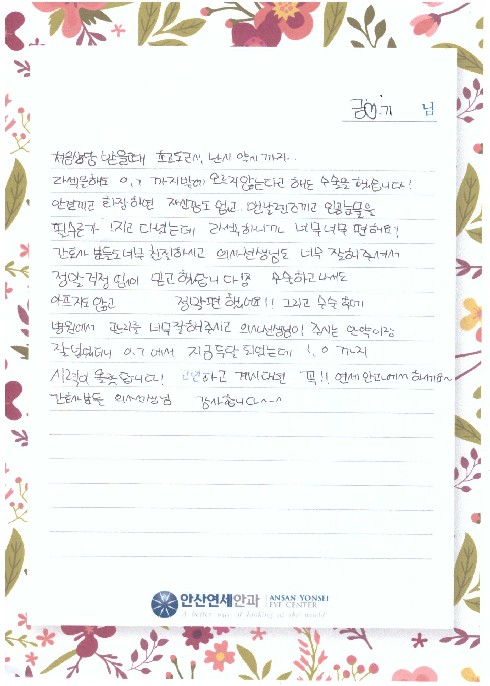 님
처음상담 받을때 초고도근시, 난시 약시까지..
라섹을해도 0.7 까지밖에 오르지 않는다고 해도 수술을 했습니다!
안경끼고 화장하면 자신감도 없고 맨날렌즈끼고 인공눈물을
필수로가지고 다녔는데 라섹하니까 너무너무 편해요?
간호사 분들도너무 친절하시고 의사선생님도 너무 잘해주셔서
정말걱정 없이 믿고했답니다! 수술하고나서도
아프지도않고 정말편했어요!! 그리고 수술 후에
병원에서 관리를 너무잘해주시고 의사선생님이 주시는 안약이랑
잘넣었더니 0.7에서 지금두달 되었는데 1.0 까지
시력이 올랐답니다! 고민하고 계시다면 꼭!! 연세안과에서 하세요~
간호사님들 의사선생님 감사합니다^-^
안산연세안과 ANSAN YONSEI EYE CENTER
A better way of looking at the world